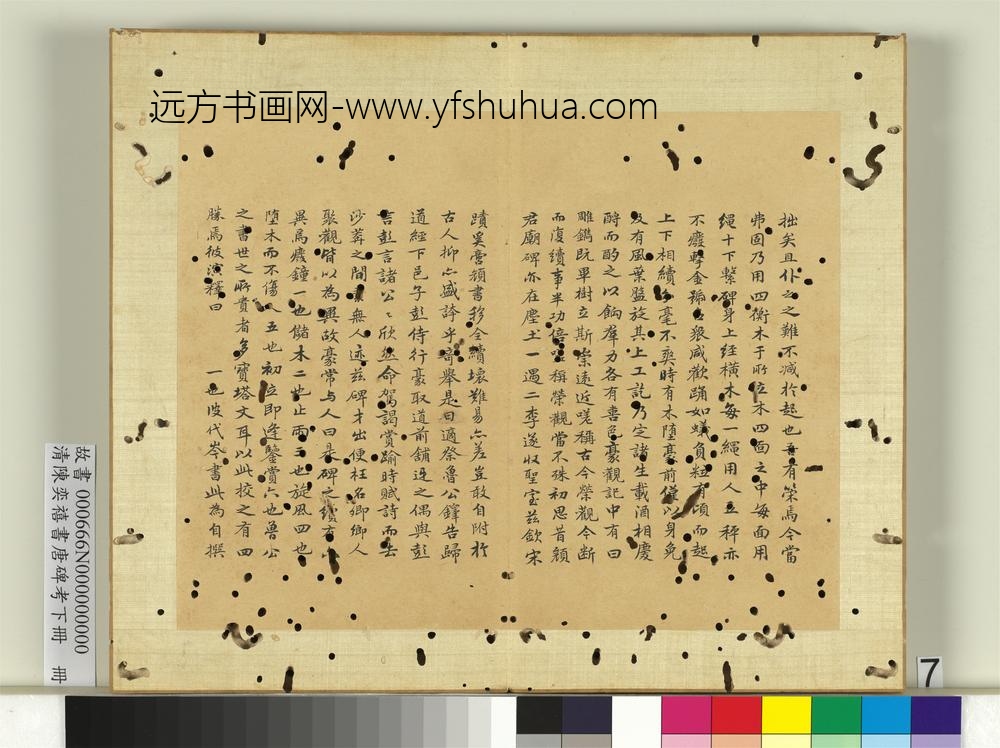 远方书画网-www.yfshuhua.com
拙矣且仆之之難不减於起也吾有策焉今當
弗固乃用四衡木于所位木四面之中每面用
繩十下繫碑身上經橫木每一繩用人五秤亦
不癈擊金號衆歡踊如蟻負粒有頃而起
上下相續毫不爽時有木堕豪前僅以身免
及有風葉盤旋其上工訖乃定諸生載酒相慶
酹而酌之以餉羣力各有喜色豪觀記中有曰
雕鐫既畢樹立斯崇遠近嗟稱古今榮觀今斷
而復續事半功倍稱榮觀當不殊初思昔顏
君廟碑亦在塵土一遇二李遂收聖宝茲歈宋
蹟奚啻頹書移全續壞難易六差豈敢自附於
古人抑亦盛誇乎舉是日適祭魯公鐸告歸
道經下邑子彭侍行豪取道前舖迓之偶與彭
言彭言諸公欣然命駕謁賞踰時賦詩而去
沙莽之間無人迹茲碑才出便枉名卿卿人
聚觀皆以為異故豪常与人曰是碑之續有
異焉癈鐘一也儲木二也止雨三也旋風四也
堕木而不傷人五也初立即逢鑒賞六也魯公
之書世之所貴者多寳塔文耳以此挍之有四
勝焉彼演釋曰 一也彼代岑書此為自撰
故書 000666N000000000
清陳奕禧書唐碑考下冊 冊
7